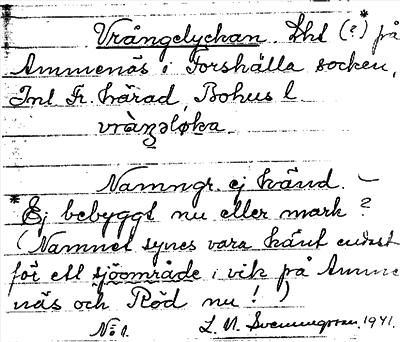 Vrångelyckan. Lht (?*) på
Ammenäs i Forshälla socken,
Inl Fr. härad, Bohus l
vràŋəløka.
Namngr. ej känd. –
* Ej bebyggt nu eller mark?
(Namnet synes vara känt endast
för ett sjöområde i vik på Amme
näs och Röd nu!)
No 1. L. N. Svenungsson. 1941.